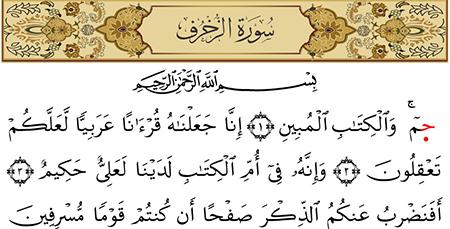 سُورَةُ الزُّخْرُفِ
بِسْمِ ٱللَّهِ ٱلرَّحْمَٰنِ ٱلرَّحِيمِ
جمٓ ۚ وَٱلْكِتَٰبِ ٱلْمُبِينِ ﴿١﴾ إِنَّا جَعَلْنَٰهُ قُرْءَٰنًا عَرَبِيًّا لَّعَلَّكُمْ
تَعْقِلُونَ ﴿٢﴾ وَإِنَّهُۥ فِىٓ أُمِّ ٱلْكِتَٰبِ لَدَيْنَا لَعَلِىٌّ حَكِيمٌ ﴿٣﴾
أَفَنَضْرِبُ عَنكُمُ ٱلذِّكْرَ صَفْحًا أَن كُنتُمْ قَوْمًا مُّسْرِفِينَ